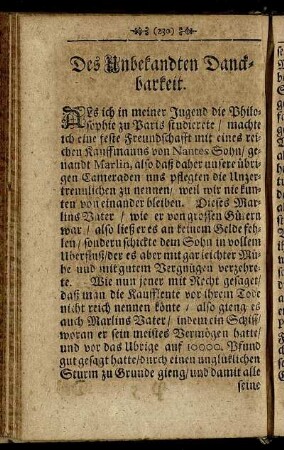 (230)
Des Unbekandten Danck-
barkeit.
ALs ich in meiner Jugend die Philo-
sophie zu Paris studierete / machte
ich eine feste Freundschafft mit eines rei-
chen Kauffmanns von Nantes Sohn / ge-
nandt Marlin, also daß daher unsere übri-
gen Cameraden uns pflegten die Unzer-
trennlichen zu nennen / weil wir nie kun-
ten von einander bleiben. Dieses Mar-
lins Vater / wie er von grossen Gütern
war / also ließ er es an keinem Gelde feh-
len / sondern schickte dem Sohn in vollem
Uberfluß / der es aber mit gar leichter Mü-
he und mit gutem Vergnügen verzehre-
te. Wie nun jener mit Recht gesaget /
daß man die Kauffleute vor ihrem Tode
nicht reich nennen könte / also gieng es
auch Marlins Vater / indem ein Schiff /
woran er sein meistes Vermögen hatte /
und vor das Ubrige auf 10000. Pfund
gut gesagt hatte / durch einen unglüklichen
Sturm zu Grunde gieng / und damit alle
seine